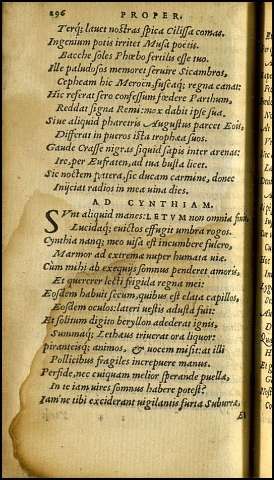 296 PROPER.
Terq; lauet nostras spica Cilissa comas.
Ingenium potis irritet Musa poetis.
Bacche soles Phœbo fertilis esse tuo.
Ille paludosos memoret seruire Sicambros,
Cepheam hic Meroen, fuscaq; regna canat:
Hic referat sero confessum fœdere Parthum,
Reddat signa Remi: mox dabit ipse sua.
Siue aliquid pharetris Augustus parcet Eois,
Differat in pueros ista trophæa suos.
Gaude Crasse nigras siquid sapis inter arenas:
Ire, per Eufraten, ad tua busta licet.
Sic noctem patera, sic ducam carmine, donec
Iniiciat radios in mea uina dies.
AD CYNTHIAM.
Sunt aliquid manes: LETVM non omnia
Lucidaq; euictos effugit umbra rogos.
Cynthia nanq; meo uisa est incumbere fulcro,
Marmor ad extremæ nuper humata uiæ.
Cum mihi ab exequijs somnus penderet amoris,
Et quererer lecti frigida regna mei:
Eosdem habuit secum, quibus est elata capillos,
Eosdem oculos: lateri uestis adusta fuit:
Et solitum digito beryllon adederat ignis,
Summaq; Lethæus triuerat ora liquor:
pirantesq; animos, & uocem misit: at illi
Pollicibus fragiles increpuere manus.
Perfide, nec cuiquam melior sperande puella,
In te iam uires somnus habere potest?
Iam'ne tibi exciderant uigilantis furta Suburræ,